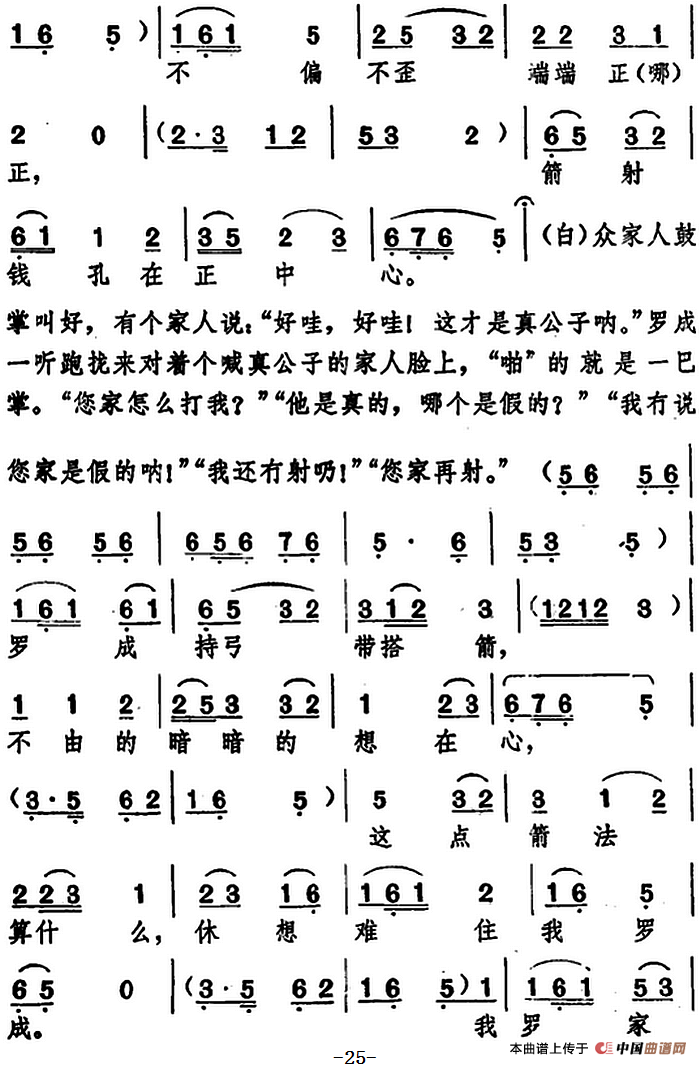 1 6 5 ) | 1 6 1 5 | 2 5 3 2 | 2 2 3 1 |
不 偏 不歪 端端 正(哪)
2 0 | (2·3 1 2 | 5 3 2 ) | 6 5 3 2 |
正, 箭 射
6 1 1 2 | 3 5 2 3 | 6 7 6 5 | (白)众家人鼓
钱 孔 在 正 中 心。
掌叫好,有个家人说:“好哇,好哇!这才是真公子呐。”罗成
一听跑找来对着个喊真公子的家人脸上,“啪”的就是一巴
掌。“您家怎么打我?”“他是真的,哪个是假的?”“我冇说
您家是假的呐!”“我还冇射吵!”“您家再射。” (5 6 5 6 |
5 6 5 6 | 6 5 6 7 6 | 5 · 6 | 5 3 5 ) |
1 6 1 6 1 | 6 5 3 2 | 3 1 2 3 | (1 2 1 2 3 ) |
罗 成 持弓 带搭 箭,
1 1 2 | 2 5 3 3 2 | 1 2 3 | 6 7 6 5 |
不 由 的 暗 暗 的 想 在 心,
(3·5 6 2 | 1 6 5 ) | 5 3 2 | 3 1 2 |
这 点 箭 法
2 2 3 1 | 2 3 1 6 | 1 6 1 2 | 1 6 5 |
算什 么, 休 想 难 住 我 罗
6 5 0 | (3·5 6 2 | 1 6 5 ) 1 | 1 6 1 5 3 |
成。 我 罗 家
本曲谱上传于 中国曲谱网
-25-